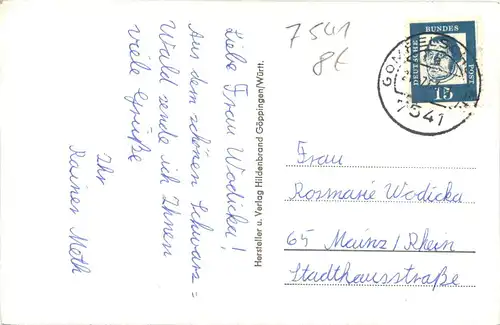 7541
8t
DEUTSCHE
BUNDES
POST
15
7541
Liebe Frau Wodicka!
Aus dem schönen Schwarz=
Wald sende ich Ihnen
viele Grüße
Ihr
Rainer Meth
Hersteller u. Verlag Hildenbrand Göppingen/Württ.
Frau
Rosmarie Wodicka
65 Mainz/Rhein
Stadthausstraße